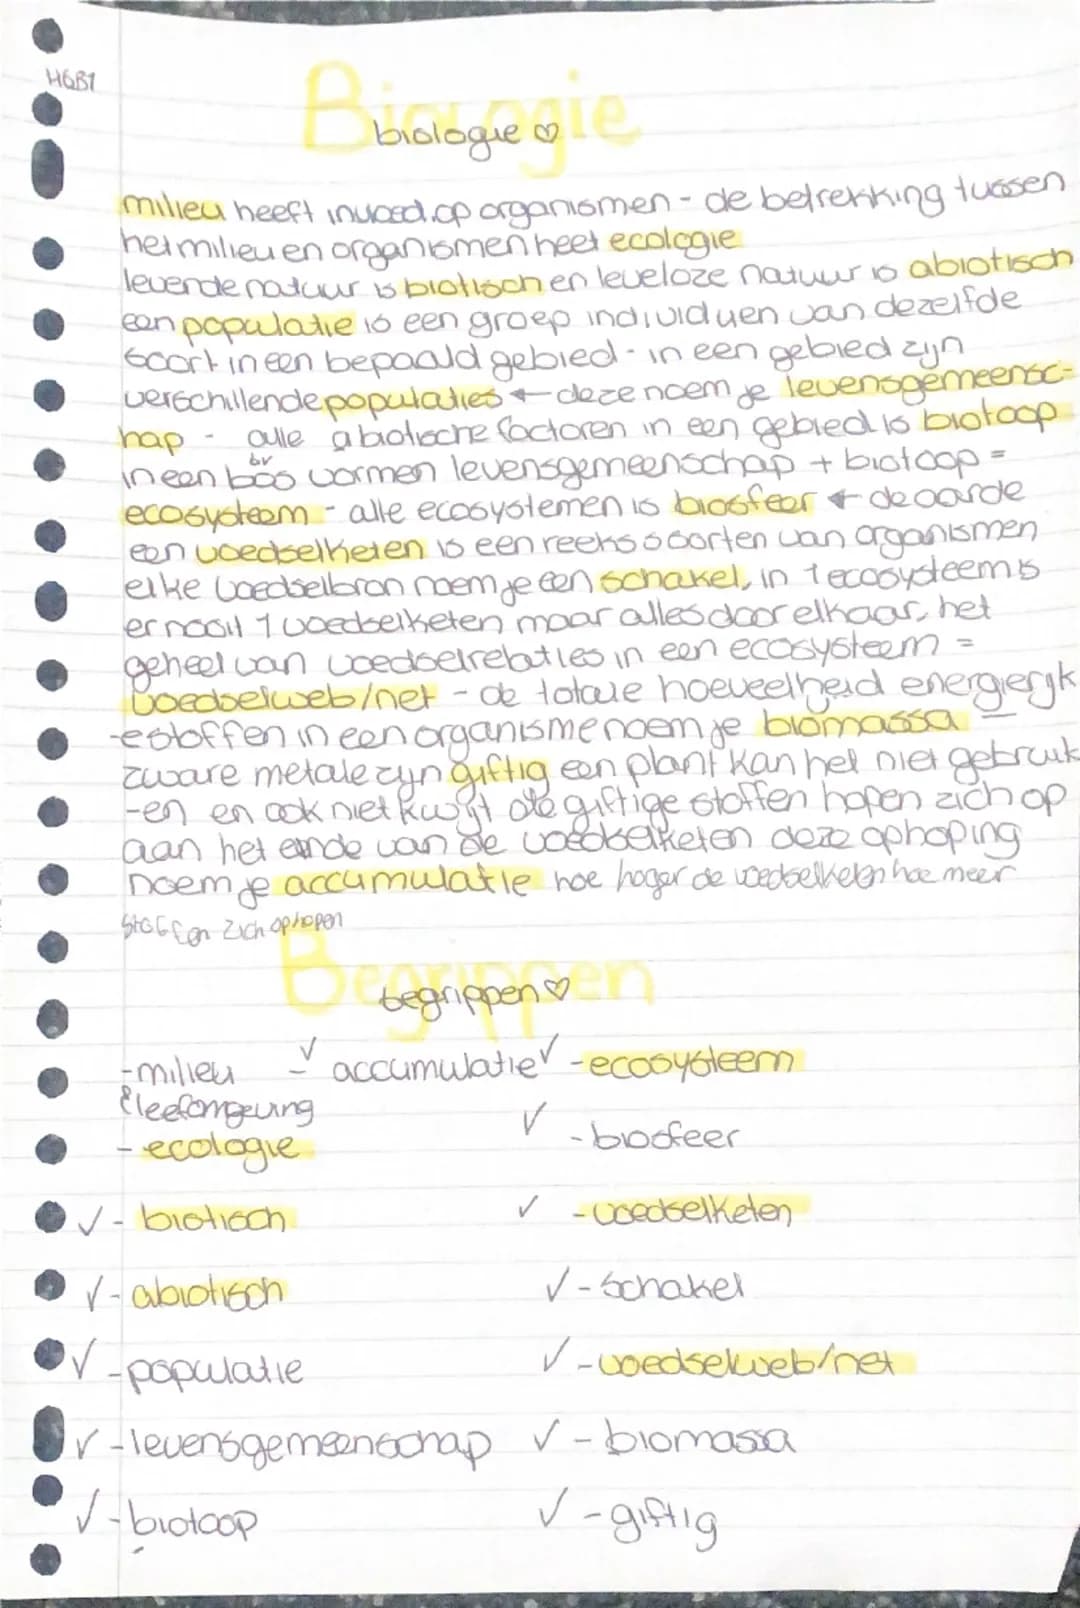 H6B1
Biologie
biologie ♡
milieu heeft invloed op organismen - de betrekking tussen
het milieu en organismen heet ecologie
levende natuur is biotisch en leveloze natuur is abiotisch
een populatie is een groep individuen van dezelfde
soort in een bepaald gebied - in een gebied zijn
verschillende populaties ← deze noem je levensgemeensc-
hap - alle abiotische factoren in een gebied is biotoop
bv
in een bos vormen levensgemeenschap + biotoop =
ecosysteem - alle ecosystemen is biosfeer ← de aarde
een voedselketen is een reeks soorten van organismen
elke voedselbron noem je een schakel, in 1 ecosysteem is
er nooit 1 voedselketen maar alles door elkaar, het
geheel van voedselrelaties in een ecosysteem =
voedselweb/net - de totale hoeveelheid energierijk
-e stoffen in een organisme noem je biomassa
zware metale zijn giftig een plant kan het niet gebruik
-en en ook niet kwijt de giftige stoffen hopen zich op
aan het einde van de voedselketen deze ophoping
noem je accumulatie hoe hoger de voedselketen hoe meer
stoffen zich ophopen
Begrippen
begrippen ♡
- milieu - ✓ accumulatie ✓ - ecosysteem
& leefomgeving
- ecologie ✓ - biosfeer
✓ - biotisch ✓ - voedselketen
✓ - abiotisch ✓ - schakel
✓ - populatie ✓ - voedselweb/net
✓ - levensgemeenschap ✓ - biomassa
✓ - biotoop ✓ - giftig